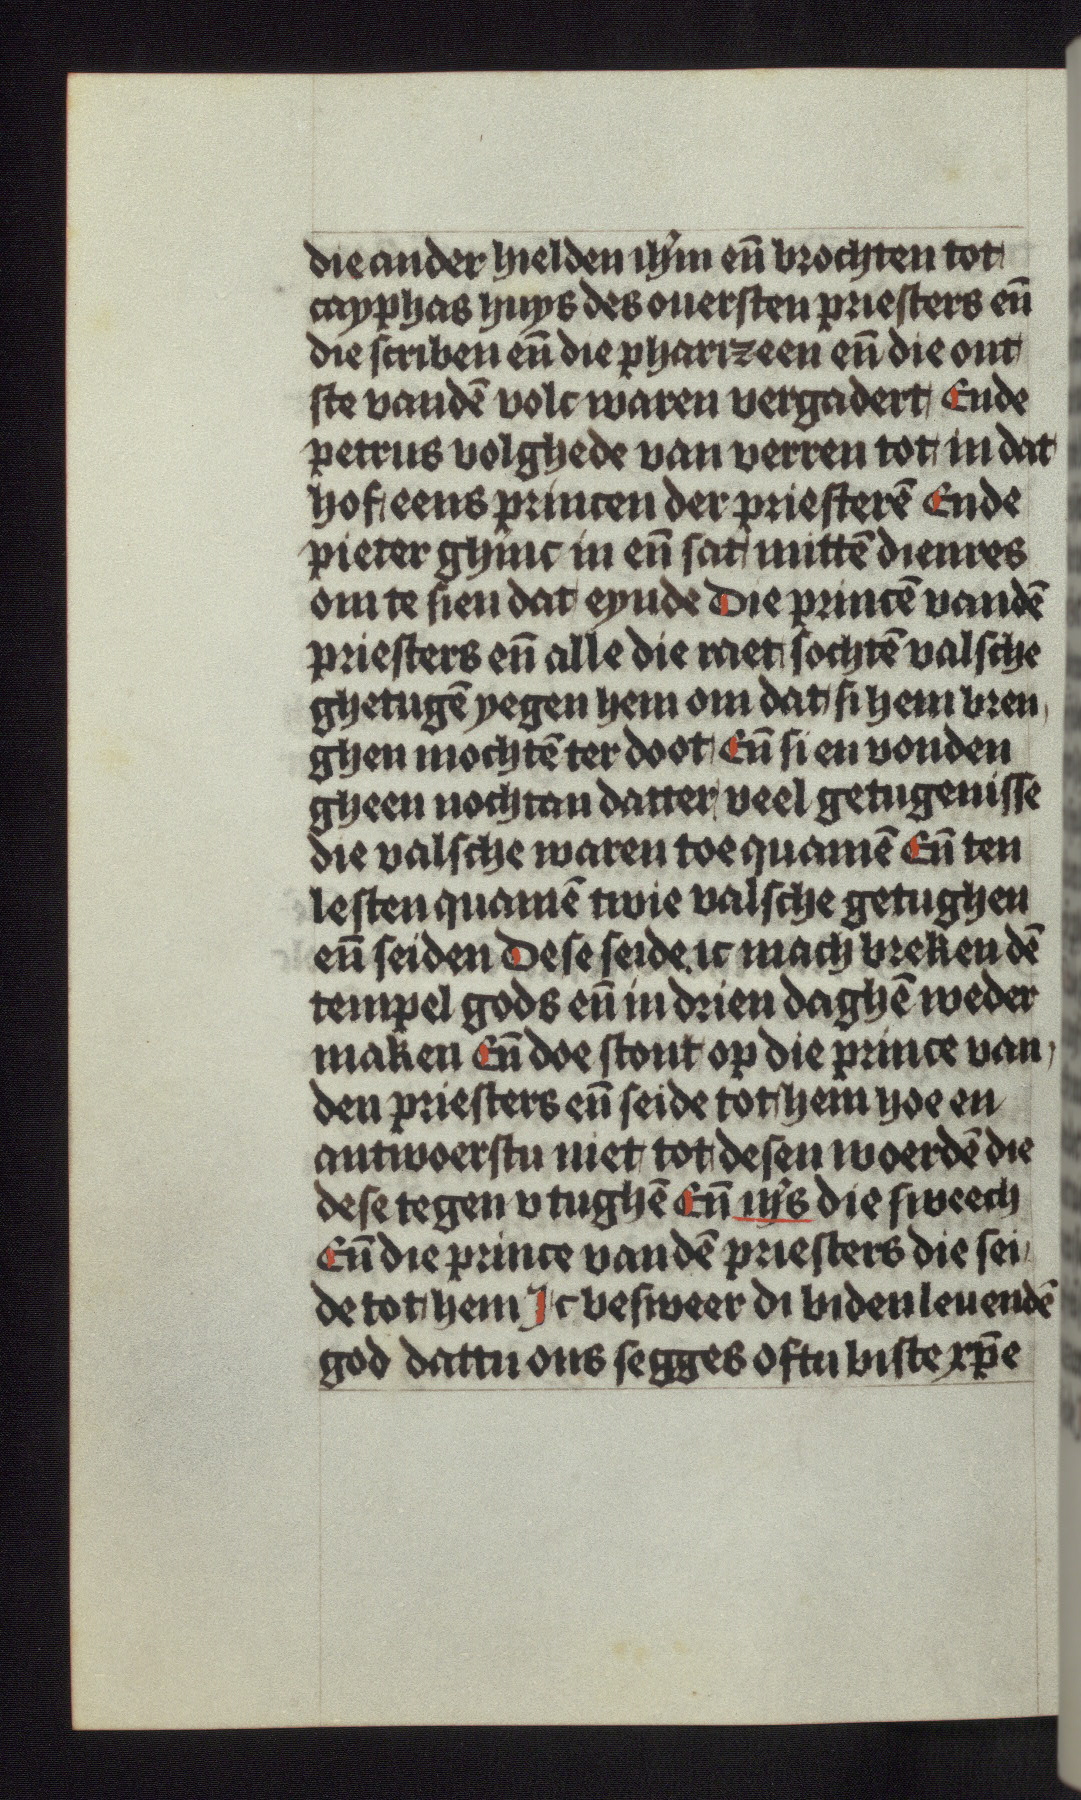 die ander hielden ihm̄ en̄ brochten tot
cayphas huys des ouersten priesters en̄
die scriben en̄ die pharizeen en̄ die out
ste vandē volc waren vergadert Ende
petrus volghede van verren tot in dat
hof eens princen der priesterē Ende
pieter ghinc in en̄ sat mittē dienres
om te sien dat eynde Die princē vandē
priesters en̄ alle die raet sochtē valsche
ghetugē yegen hem om dat si hem bren
ghen mochtē ter doot En̄ si en vonden
gheen nochtan datter veel getugenisse
die valsche waren toe quamē En̄ ten
lesten quamē twie valsche getughen
en̄ seiden Dese seide ic mach breken dē
tempel gods en̄ in drien daghē weder
maken En̄ doe stont op die prince van
den priesters en̄ seide tot hem hoe en
antwoerstu niet tot desen woerdē die
dese tegen v tughē En̄ ihs̄ die sweech
En̄ die prince vandē priesters die sei
de tot hem Ic besweer di biden leuendē
god dattu ons segges oftu biste xp̄e